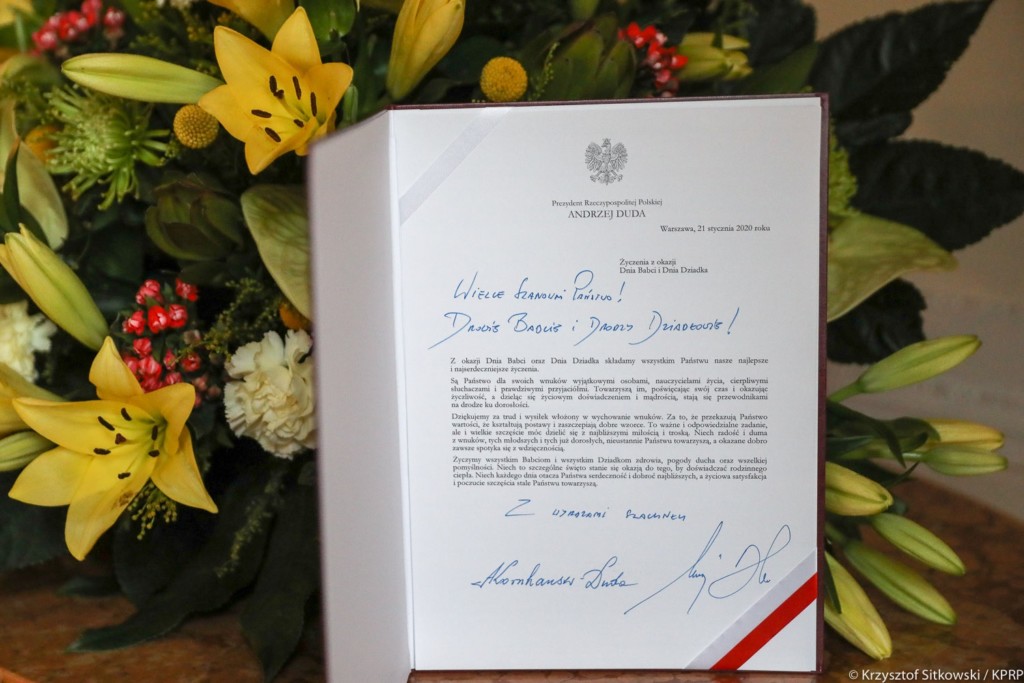 Prezydent Rzeczypospolitej Polskiej
ANDRZEJ DUDA
Warszawa, 21 stycznia 2020 roku
Życzenia z okazji
Dnia Babci i Dnia Dziadka
Wielce Szanowni Państwo!
Drogie Babcie i Drodzy Dziadkowie!
Z okazji Dnia Babci oraz Dnia Dziadka składamy wszystkim Państwu nasze najlepsze
i najserdeczniejsze życzenia.
Są Państwo dla swoich wnuków wyjątkowymi osobami, nauczycielami życia, cierpliwymi
słuchaczami i prawdziwymi przyjaciółmi. Towarzyszą im, poświęcając swój czas i okazując
życzliwość, a dzieląc się życiowym doświadczeniem i mądrością, stają się przewodnikami
na drodze ku dorosłości.
Dziękujemy za trud i wysiłek włożony w wychowanie wnuków. Za to, że przekazują Państwo
wartości, że kształtują postawy i zaszczepiają dobre wzorce. To ważne i odpowiedzialne zadanie,
ale i wielkie szczęście móc dzielić się z najbliższymi miłością i troską. Niech radość i duma
z wnuków, tych młodszych i tych już dorosłych, nieustannie Państwu towarzyszą, a okazane dobro
zawsze spotyka się z wdzięcznością.
Życzymy wszystkim Babciom i wszystkim Dziadkom zdrowia, pogody ducha oraz wszelkiej
pomyślności. Niech to szczególne święto stanie się okazją do tego, by doświadczać rodzinnego
ciepła. Niech każdego dnia otacza Państwa serdeczność i dobroć najbliższych, a życiowa satysfakcja
i poczucie szczęścia stale Państwu towarzyszą.
Z wyrazami szacunku
AKornhauser-Duda
© Krzysztof Sitkowski / KPRP